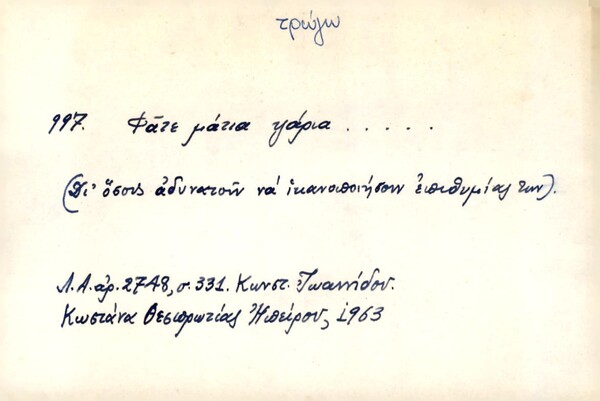 τρώγω
997. Φᾶτε μάτια ψάρια . . . . . .
(Δι' ὅσους ἀδυνατοῦν νά ἱκανοποιήσουν ἐπιθυμίας των).
Λ.Α. ἀρ. 2748, σ. 331. Κωνστ. Ἰωαννίδου.
Κωστάνα Θεσπρωτίας Ἠπείρου, 1963